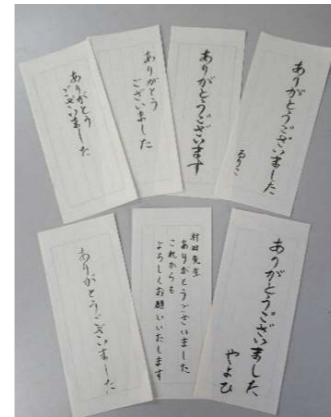 ありがとう
ございました
ありがとう
ございました
ありがとうございます
ありがとうございました
るりこ
ありがとうございました
村田先生
ありがとうございました
これからも
よろしくお願いいたします
ありがとうございました
やよひ